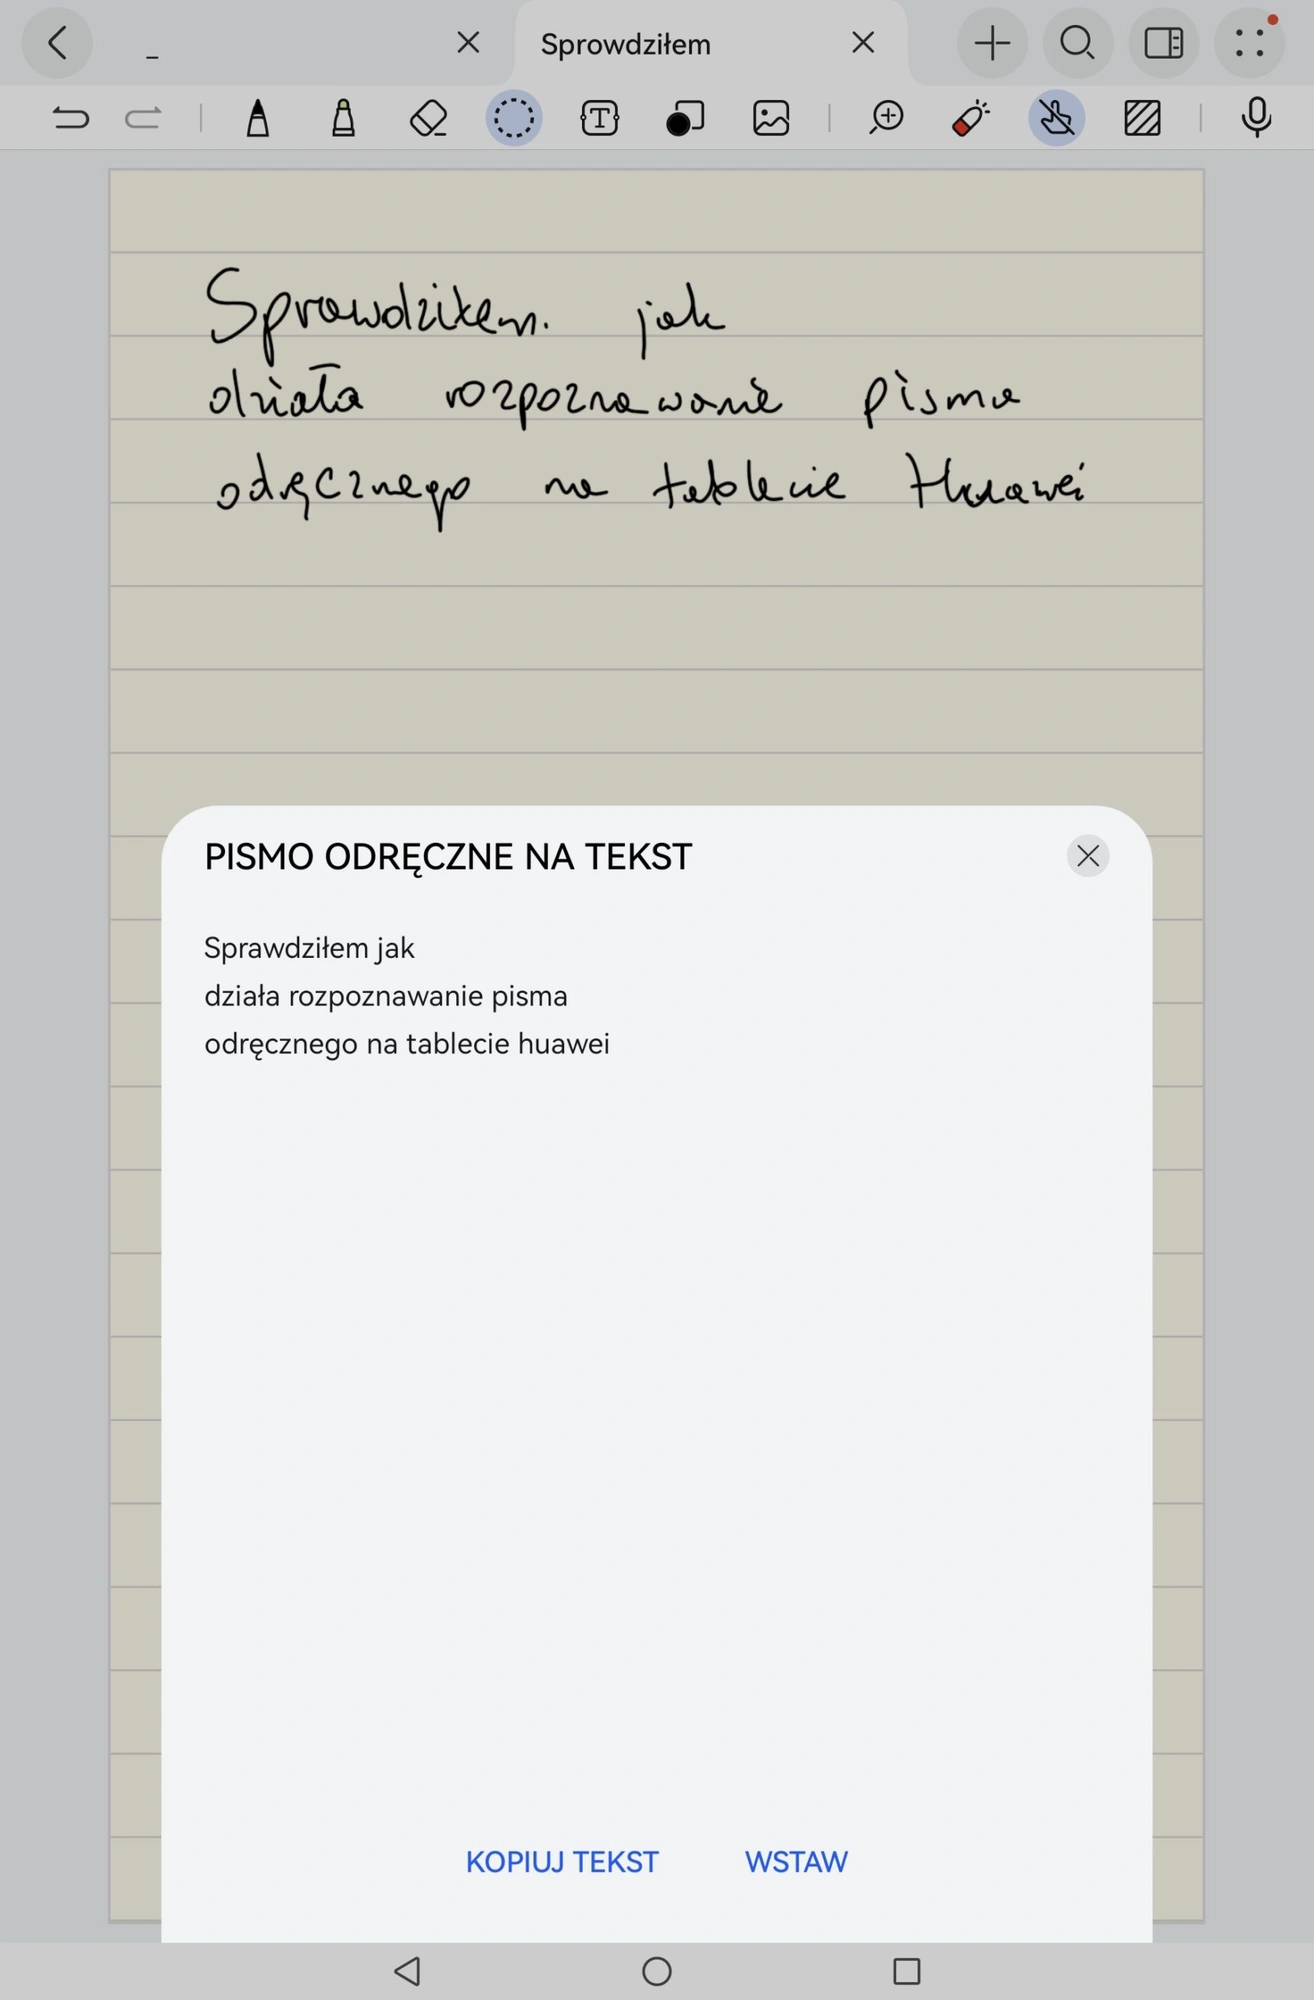 _
Sprowdziłem
Sprawdziłem. jak
działa rozpoznawanie pisma
odręcznego na tablecie Huawei
PISMO ODRĘCZNE NA TEKST
Sprawdziłem jak
działa rozpoznawanie pisma
odręcznego na tablecie huawei
KOPIUJ TEKST WSTAW